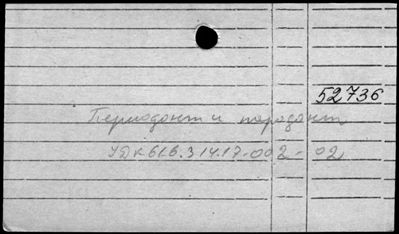 52736
Периодонт и пародонт
УДК 616.314.17-002-02